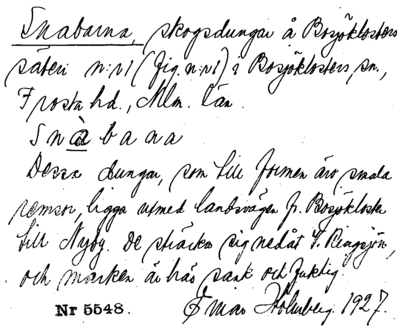 Snabarna, skogsdungar å Bosjöklosters
säteri n:r 1 (fig. n:r 1) i Bosjöklosters sn.,
Frosta hd., Mlm. län.
Snàbana
Dessa dungar, som till formen äro smala
remsor, ligga utmed landsvägen fr. Bosjökloster
till Nyby. De sträcka sig nedåt V. Ringsjön,
och marken är här sank och fuktig.
Nr 5548. Ömar Holmberg. 1927.